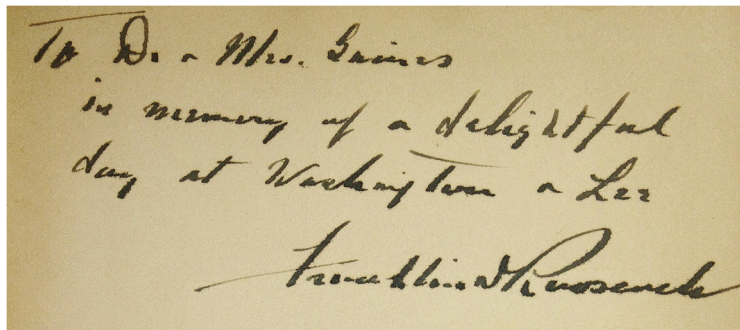 To Dr & Mrs. Gaines
in memory of a delightful
day at Washington & Lee
Franklin D Roosevelt